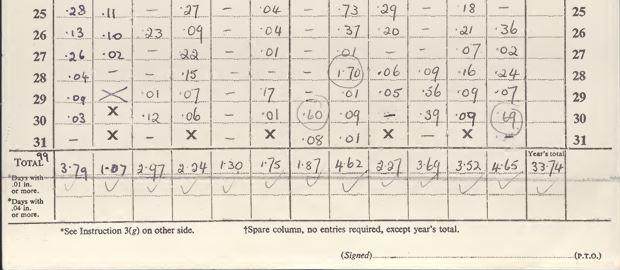 25 .28 .11 – .27 – .04 – .73 .29 – .18 – 25
26 .13 .10 .23 .09 – .04 – .37 .20 – .21 .36 26
27 .26 .02 – .22 – .01 – .01 – – .07 .02 27
28 .04 – – .15 – – – 1.70 .06 .09 .16 .24 28
29 .09 X .01 .07 – .17 – .01 .05 .56 .09 .07 29
30 .03 X .12 .06 – .01 .60 .09 – .39 .09 .69 30
31 – X – X – X .08 .01 X – X – 31
Year's total
TOTAL 99 3.79 1.87 2.97 2.24 1.30 1.75 1.87 4.62 2.27 3.69 3.52 4.65 33.74
*Days with
.01 in.
or more. ✓ ✓ ✓ ✓ ✓ ✓ ✓ ✓ ✓ ✓ ✓ ✓ ✓
*Days with
.04 in.
or more.
*See Instruction 3(g) on other side. †Spare column, no entries required, except year's total.
(Signed) (P.T.O.)